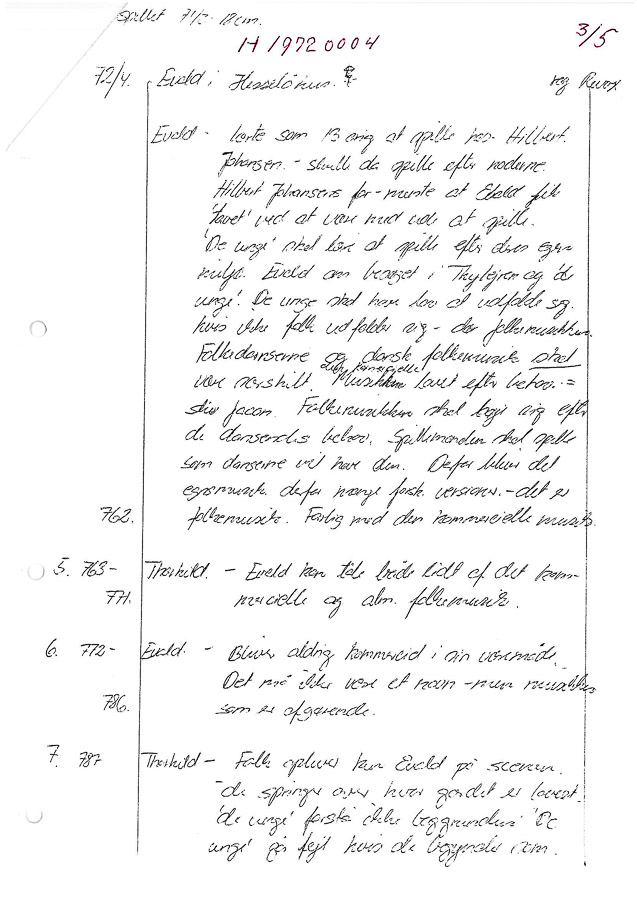 spillet 7½ - 18cm.
H 1972 0004
3/5
72/4. Evald i Hesselåhus. reg Revox
Evald - lærte som 13 årig at spille hos Hilbert
Johansen. - skulle da spille efter noderne.
Hilbert Johansens for- at Evald fik
'lavet' ved at være med ude at spille.
'De unge' skal lære at spille efter deres egen
miljø. Evald om besøget i Thylejren og 'de
unge'. De unge skal have lov at udfolde sig,
hvis ikke folk udfolder sig - dør folkemusikken.
Folkedanserne og dansk folkemusik skal
være særskilt. Musikken lavet efter behov. =
Folkemusikken skal bøje sig efter
de dansendes behov. Spillemanden skal spille
som danserne vil have den. Derfor bliver det
egnsmusik derfor mange forsk. versioner. - det er
762. folkemusik. Farlig med den kommercielle musik.
5. 763- Thorkild. - Evald kan tåle både lidt af det kom-
771. mercielle og alm. folkemusik.
6. 772- Evald. - Bliver aldrig kommerciel i sin væremåde.
Det må ikke være et navn - men musikken
786. som er afgørende.
7. 787 Thorkild - Folk oplever kun Evald på scenen.
de springer over hvor gærdet er lavest.
'de unge' forstå ikke baggrunden. 'De
unge' går fejl hvis de begynder som.